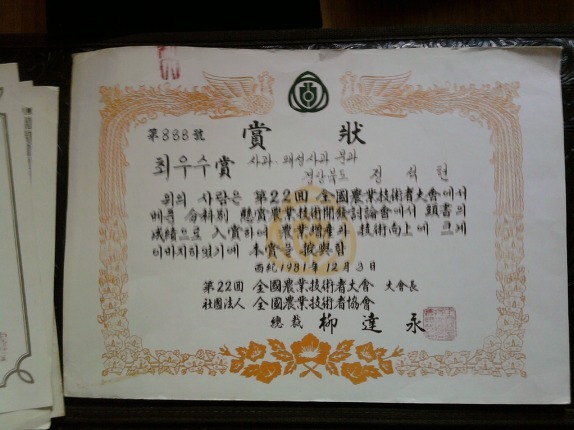 第888號
賞狀
최우수賞 사과·왜성사과 분과
경상북도 정석현
위의 사람은 第22回 全國農業技術者大會에서
베푼 分科別 懸賞農業技術開發討論會에서 顯著의
成績으로 入賞하여 農業增産과 技術向上에 크게
이바지하였기에 本賞을 授與함
西紀 1981年 12月 3日
第22回 全國農業技術者大會 大會長
社團法人 全國農業技術者協會
總裁 柳達永